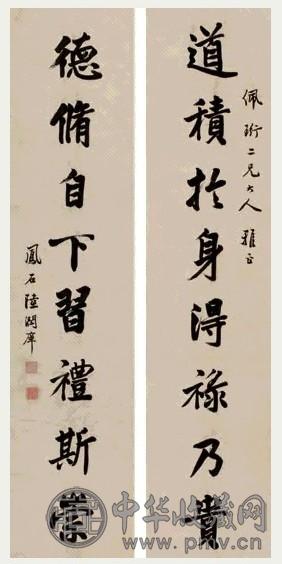 佩珩二兄大人 雅正
道積於身得祿乃貴
德脩自下習禮斯崇
鳳石陸潤庠
中华收藏网
www.pmv.cn